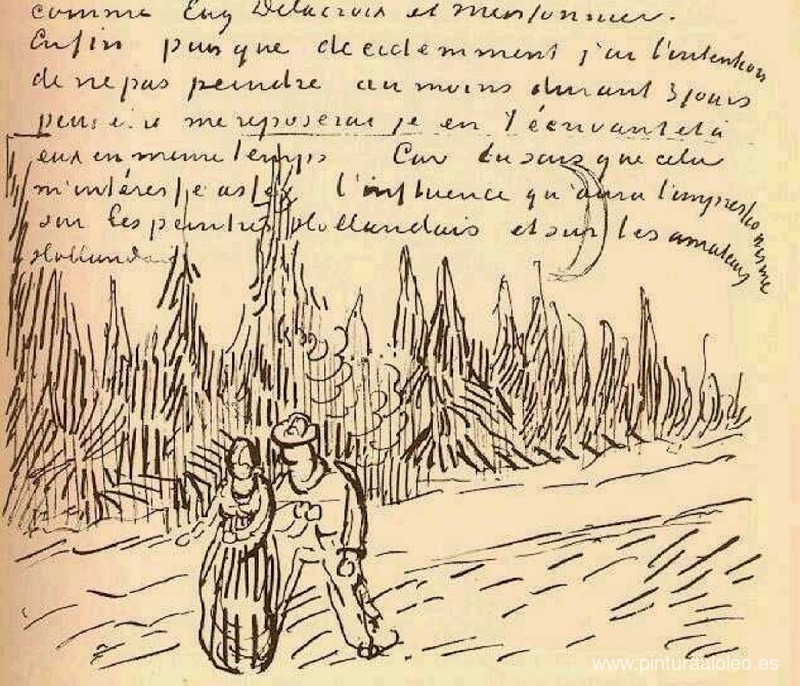 comme Eug Delacroix et Meissonnier.
Enfin puisque decidemment j'ai l'intention
de ne pas peindre au moins durant 3 jours
peut etre me reposerai je en t'écrivant et à
eux en meme temps Car tu sais que cela
m'intéresse assez l'influence qu'aura l'impressionisme
sur les peintres Hollandais et sur les amateurs
Hollandais
www.pinturaaloleo.es